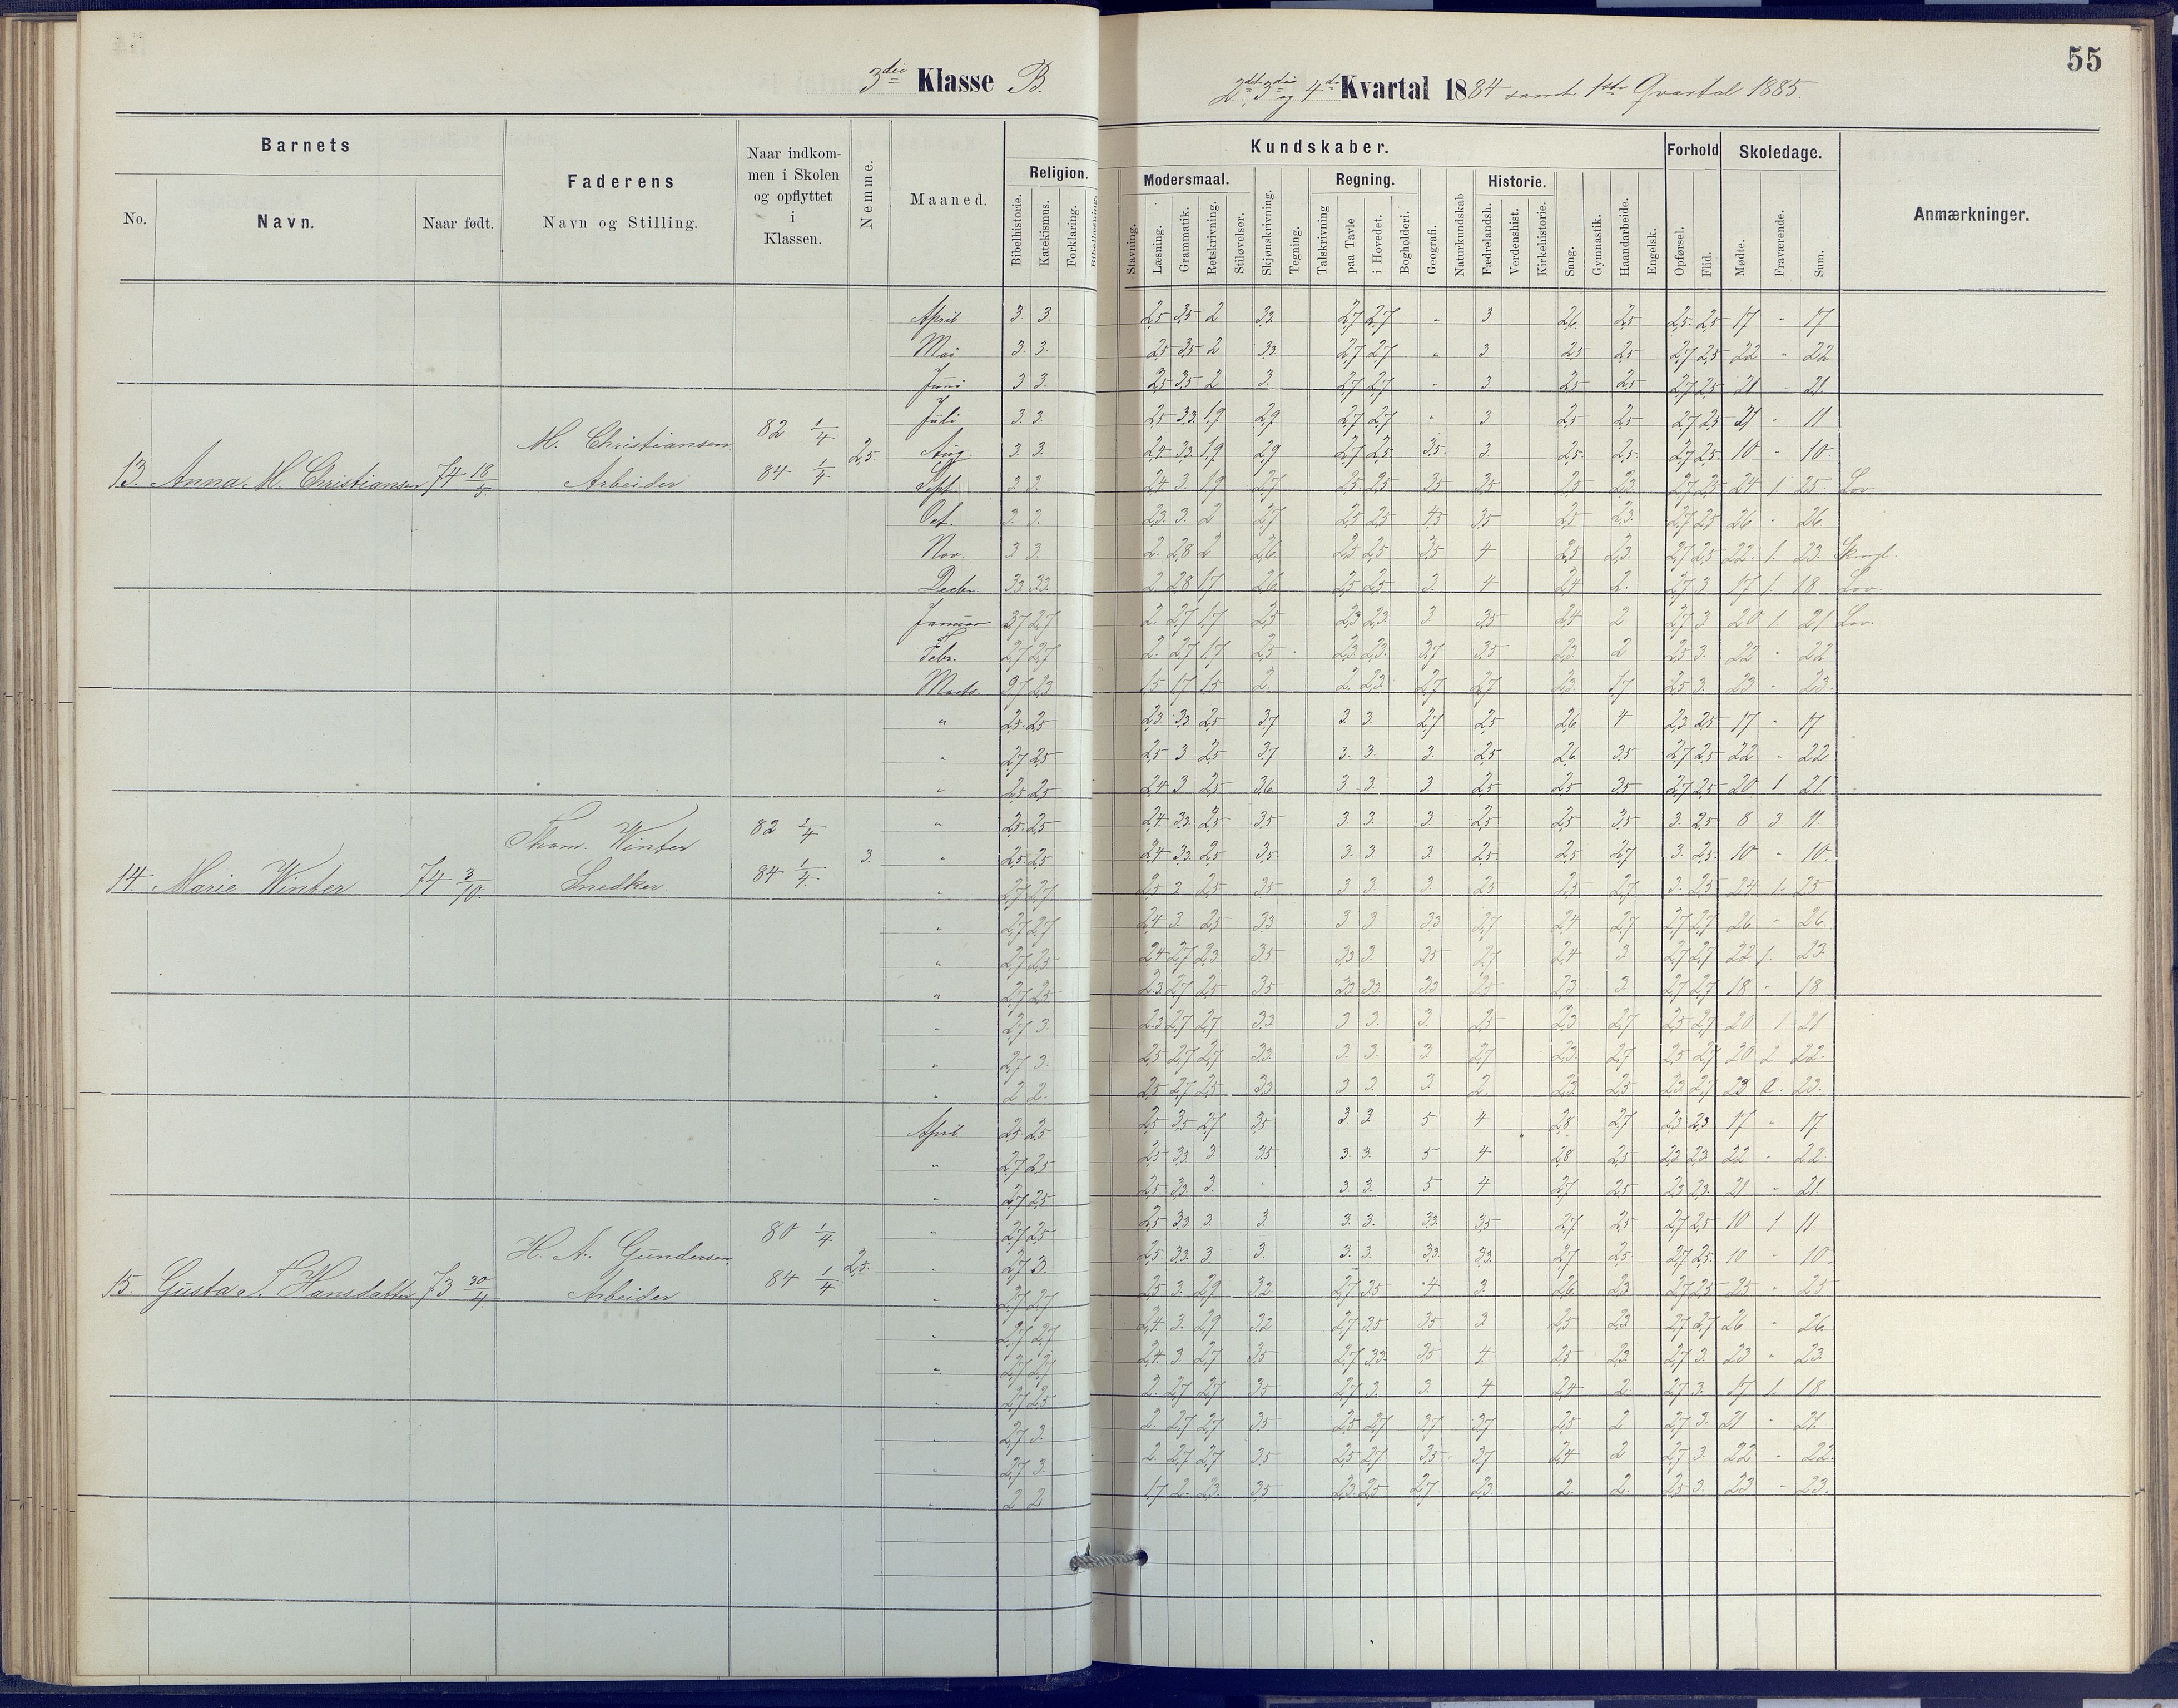 55
3die Klasse B.
2det 3die og 4de Kvartal 1884 samt 1ste Qvartal 1885.
Barnets
Faderens
Naar indkom-
men i Skolen
og opflyttet
i
Klassen.
Nemme.
Maaned.
Religion.
Kundskaber.
Modersmaal.
Regning.
Historie.
Forhold
Skoledage.
Anmærkninger.
No.
Navn.
Naar født.
Navn og Stilling.
Bibelhistorie.
Katekismus.
Forklaring.
Bibellæsning.
Stavning.
Læsning.
Grammatik.
Retskrivning.
Stiløvelser.
Skjønskrivning.
Tegning.
Talskrivning
paa Tavle
i Hovedet.
Bogholderi.
Geografi.
Naturkundskab
Fædrelandsh.
Verdenshist.
Kirkehistorie.
Sang.
Gymnastik.
Haandarbeide.
Engelsk.
Opførsel.
Flid.
Mødte.
Fraværende.
Sum.
April 3. 3. 2,5 3,5 2 3,3. 2,7 2,7 " 3 2,6. 2,5 2,5 2,5 17 " 17
Mai 3. 3. 2,5 3,5 2 3,3 2,7 2,7 " 3 2,5 2,5 2,7 2,5 22 " 22
Juni 3 3. 2,5 3,5 2 3. 2,7 2,7 " 3. 2,5 2,5 2,7 2,5 21 " 21
Juli 3. 3. 2,5 3,3 1,9 2,9 2,7 2,7 " 3 2,5 2,5 2,7 2,5 11
M. Christiansen 82 1/4
Aug. 3. 3. 2,4 3,3 1,9 2,9 2,7 2,5 3,5. 3. 2,5. 2,5. 2,7 2,5. 10 " 10.
13. Anna M. Christiansen 74 18/ Arbeider 84 1/4 2,5.
Sept. 3 3. 2,4 3. 1,9 2,7 2,5 2,5 3,5 3,5 2,5 2,3. 2,7 2,5 24 1 25. Lov
Oct. 3. 3. 2,3. 3. 2 2,7 2,5 2,5 4,5 3,5 2,5 2,3. 2,7 2,5 26 " 26
Nov. 3 3. 2. 2,8 2 2,6 2,5 2,5 3,5 4 2,5 2,3. 2,7 2,5 22. 1. 23.
Decbr. 3,3 3,3. 2 2,8 1,7 2,6 2,5 2,5 3. 4 2,4 2. 2,7 3 17 1. 18. Lov.
Januar 2,7 2. 2,7 1,7 2,5 2,3 2,3 3 3,5 2,4 2 2,7 3 20 1. 21 Lov.
Febr. 2,7 2,7 2. 2,7 1,7 2,5 2,3. 2,3. 3,7 3,5 2,3. 2 2,5 3. 22 " 22.
Marts. 2,7 2,3 1,5 1,7 1,5 2. 2. 2,3. 2,7 2,7 2,3. 1,7 2,5 3. 23 " 23.
" 2,5. 2,5 2,3 3,3. 2,5 3,7 3. 3. 2,7 2,5 2,6 4 2,3 2,5 17 " 17
" 2,7 2,5 2,5 3 2,5 3,7 3. 3. 3. 2,5 2,6 3,5 2,7 2,5 22 " 22
" 2,5 2,5 2,4 3 2,5 3,6 3. 3. 3 2,5 2,5 3,5 2,7 2,5 20 1 21.
" 2,5. 2,5 2,4 3,3 2,5 3,5 3. 3. 3. 2,5 2,5 3,5 3. 2,5 8 3. 11.
Thom. Winter 82 1/4
" 2,5. 2,5 2,4 3,3. 2,5 3,5. 3. 3. 3. 2,5. 2,5 2,7 3. 2,5. 10 " 10.
14. Marie Winter 74 3/10. Snedker. 84 1/4. 3.
" 2,7 2,7 2,5 3 2,5 3,5 3 3. 3. 2,5 2,5 2,7. 3. 2,5 24. 1. 25
" 2,7 2,7 2,4 3. 2,5 3,3 3 3. 3,3 2,7 2,4 2,7 2,7 2,7 26 " 26.
" 2,7 2,5 2,4 2,7 2,3 3,5 3,3 3. 3,5 2,7 2,4 3 2,7 2,7 22 1. 23
" 2,7 2,5 2,3 2,7 2,5 3,5 3,3 3,3. 3,3 2,5 2,3 3. 2,7 2,7 18 " 18
" 2,7 3. 2,3 2,7 2,7 3,3 3 3. 3. 2,5 2,3 2,7 2,5 2,7 20 1 21
" 2,7 3. 2,5 2,7 2,7 3,3. 3. 3. 3 2,7 2,3. 2,7 2,5 2,7 20 2 22.
" 2 2. 2,5 2,7 2,5 3,3 3 3. 3. 2. 2,3. 2,5 2,3. 2,7 23 23.
April 2,5 2,5 2,5 3,5 2,7 3,5 3. 3 5 4 2,8 2,7 2,3 2,3 17 " 17
" 2,7 2,5 2,5 3,3. 3. 3,5 3. 3. 5 4 2,8 2,5 2,3. 2,3. 22 " 22
" 2,7 2,5 2,5 3,3. 3. " 3. 3. 5 4 2,7 2,5 2,3 2,3. 21 " 21.
" 2,7 2,5 2,5 3,3. 3. 3. 3. 3. 3,3. 3,5 2,7 2,5 2,7 2,5 10 1 11
H. A. Gundersen 80 1/4
" 2,7 3. 2,5. 3,3. 3. 3. 3. 3. 3,3. 3,3. 2,7 2,5. 2,7 2,5. 10 " 10.
15. Gusta S. Hansdatter 73 30/4. Arbeider 84 1/4 2,5.
" 2,7 2,7 2,5 3. 2,9 3,2. 2,7 3,5 4 3. 2,6 2,3 2,7 2,5 25 " 25
" 2,7 2,7 2,4 3. 2,9 3,2 2,7 3,5 3,5 3 2,5 2,3 2,7 2,7 26 " 26
" 2,7 2,7 2,4 3. 2,7 3,5 2,7 3,3. 3,5 4 2,5 2,3. 2,7 3. 23 " 23
" 2,7 2,5 2. 2,7 2,7 3,5 2,7 3. 3. 4 2,4 2. 2,7 3. 17 1. 18
" 2,7 3. 2. 2,7 2,7 3,5 2,5 2,7 3,7 3,7 2,5 2 2,7 3. 21 " 21.
" 2,7 3. 2. 2,7 2,7 3,5 2,5 2,7 3,5 3,7 2,4 2 2,7 3. 22 " 22.
" 2 2 1,7 2. 2,3. 3,5 2,3. 2,5 2,7 2,3. 2. 2. 2,5 3. 23 " 23.